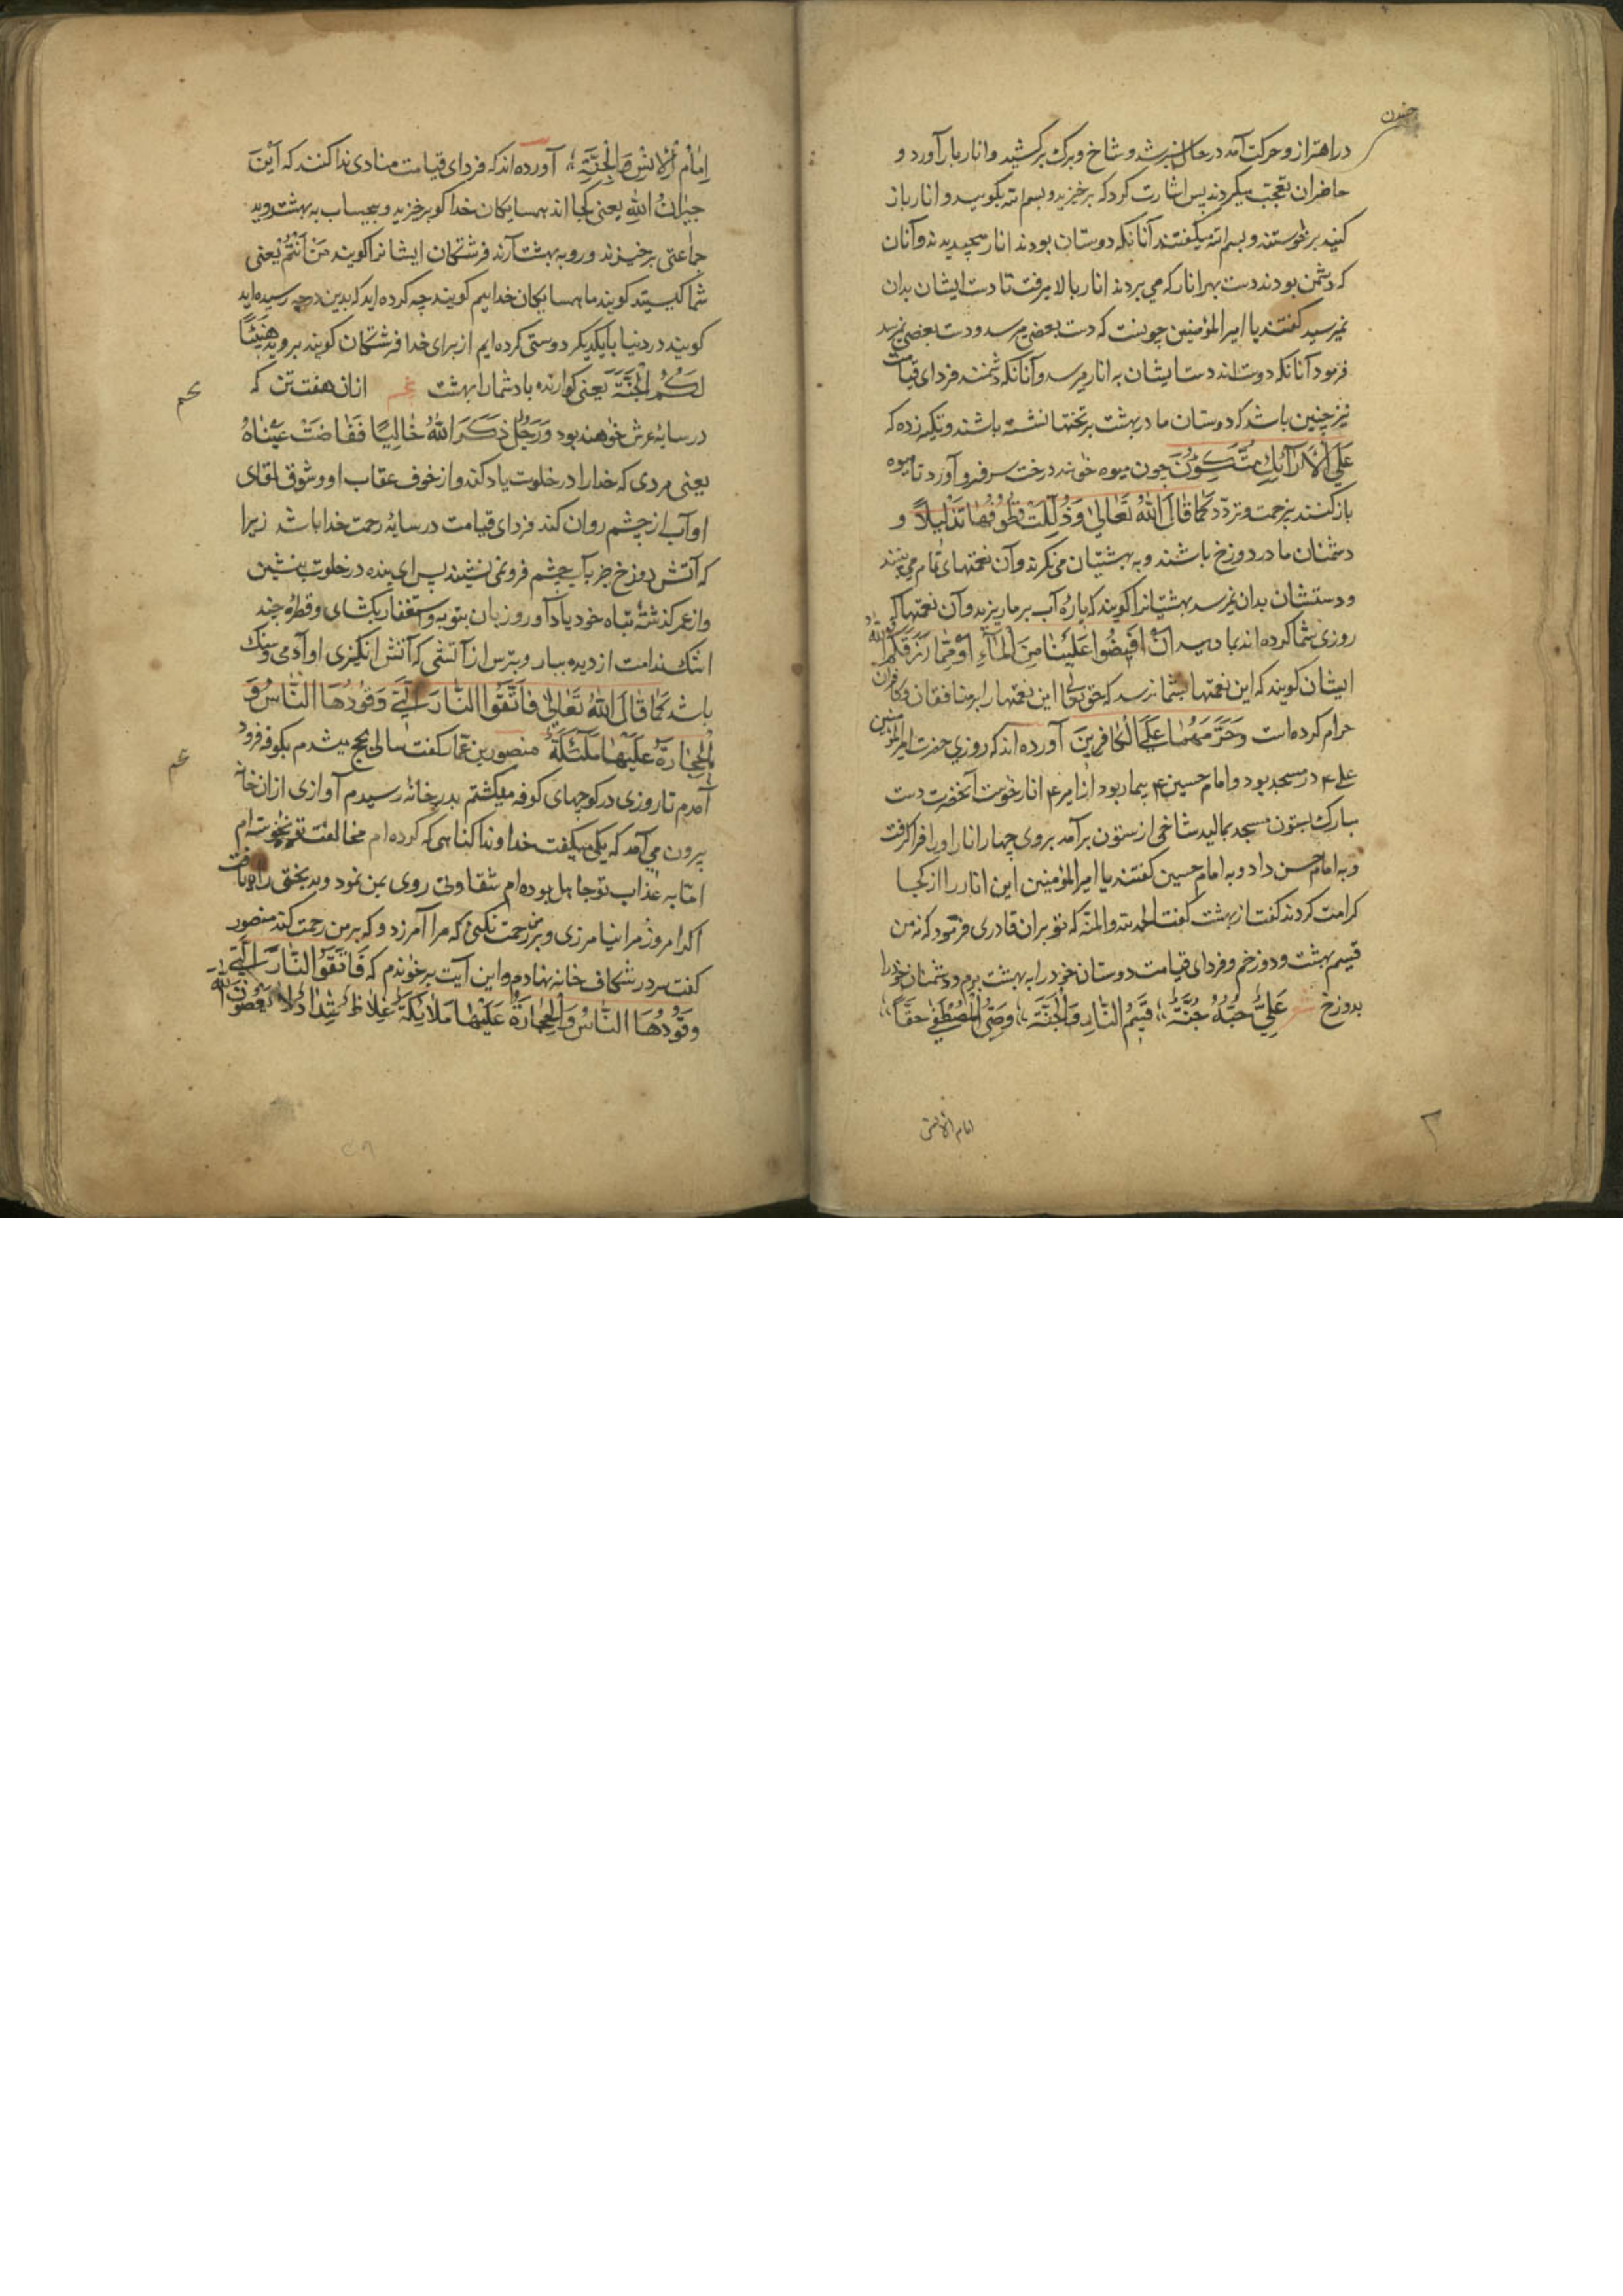 در اهتزاز و حرکت آمد در حال سبز شد و شاخ و برک برکشید و انار بار آورد و
حاضران تعجب میکردند پس اشارت کرد که برخیزید و بسم الله بکویید و انار باز
کنید برخوستند و بسم الله میکفتند آنانکه دوستان بودند انار میچیدیدند و آنان
که دشمن بودند دست بهر انار که می بردند انار بالا میرفت تا دست ایشان بدان
نمیرسید کفتند یا امیر المؤمنین چونست که دست بعضی میرسد و دست بعضی نمیرسد
فرمود آنانکه دوست اند دست ایشان به انار میرسد و آنانکه دشمنند فردای قیامت
نیز چنین باشد که دوستان ما در بهشت بر تختها نشسته باشند و تکیه زده که
عَلَی الْاَرَآئِكِ مُتَّكِؤُنَ چون میوه خوهند درخت سر فرو آورد تا میوه
باز کنند بی زحمت و تردد کَمَا قَالَ اللّٰهُ تَعَالٰی وَذُلِّلَتْ قُطُوفُهَا تَذْلِیلًا و
دشمنان ما در دوزخ باشند و به بهشتیان می نکرند و آن نعمتهای تمام می بینند
و دستشان بدان نمیرسد بهشتیانرا کویند که پارهٔ آب بر ما ریزید و آن نعمتها که
روزی شما کرده اند بما دهید اَنْ اَفِیضُوا عَلَیْنَا مِنَ الْمَآءِ اَوْ مِمَّا رَزَقَکُمُ اللّٰهُ
ایشان کویند که این نعمتها بشما نرسد که حق تعالی این نعمتها را بر منافقان و کافران
حرام کرده است وَحَرَّمَهُمَا عَلَی الْکَافِرِینَ آورده اند که روزی حضرت امیر المؤمنین
علی ع در مسجد بود و امام حسین ع بیمار بود از امیر ع انار خوست آنحضرت دست
مبارک بستون مسجد بمالید شاخی از ستون برآمد بر وی چهار انار او را فراکرفت
و به امام حسن داد و به امام حسین کفتند یا امیر المؤمنین این انار را از کجا
کرامت کردند کفت از بهشت کفت الحمد لله والمنه که تو بران قادری فرمود که نه من
قسیم بهشت و دوزخم و فردای قیامت دوستان خود را به بهشت برم و دشمنان خود را
بدوزخ شعر عَلِیٌّ حُبُّهُ جُنَّةٌ قَسِیمُ النَّارِ وَالْجَنَّةِ وَصِیُّ الْمُصْطَفٰی حَقًّا
امام الانس
اِمَامُ الْاِنْسِ وَالْجِنَّةِ آورده اند که فردای قیامت منادی ندا کنند که اَیْنَ
جِیرَانُ اللّٰهِ یعنی کجا اند همسایکان خدا کو برخزید و بیحساب به بهشت روید
جماعتی برخیزند و رو به بهشت آرند فرشتکان ایشانرا کویند مَنْ اَنْتُمْ یعنی
شما کیستید کویند ما همسایکان خداییم کویند چه کرده اید که بدین درجه رسیده اید
کویند در دنیا با یکدیکر دوستی کرده ایم از برای خدا فرشتکان کویند بروید هَنِیئًا
لَکُمُ الْجَنَّةَ یعنی کوارنده باد شما را بهشت انان هفت تن که
در سایهٔ عرش خوهند بود وَرَجُلٌ ذَکَرَ اللّٰهَ خَالِیًا فَفَاضَتْ عَیْنَاهُ
یعنی مردی که خدا را در خلوت یاد کند و از خوف عقاب او و شوق لقای
او آب از چشم روان کند فردای قیامت در سایهٔ رحمت خدا باشد زیرا
که آتش دوزخ جز بآب چشم فرو نمی نشیند پس ای بنده در خلوت بنشین
و از عمر کذشتهٔ تباه خود یاد آور و زبان بتوبه و استغفار بکشای و قطرهٔ چند
اشک ندامت از دیده ببار و بترس از آتشی که آتش انکیزی او آدمی و سنک
باشد کَمَا قَالَ اللّٰهُ تَعَالٰی فَاتَّقُوا النَّارَ الَّتِی وَقُودُهَا النَّاسُ وَ
الْحِجَارَةُ عَلَیْهَا مَلٰئِکَةٌ منصور بن عمار کفت سالی بحج میشدم بکوفه فرود
آمدم تا روزی در کوچهای کوفه میکشتم بدر خانهٔ رسیدم آوازی ازان خانه
بیرون می آمد که یکی میکفت خداوندا کناهی که کرده ام مخالفت تو نخوسته ام
امّا به عذاب تو جاهل بوده ام شقاوتی روی بمن نمود و بدبختی راه یافت
اکر امروز مرا نیامرزی و بر من رحمت نکنی که مرا آمرزد و که بر من رحمت کند منصور
کفت سر در شکاف خانه نهادم و این آیت برخوندم که فَاتَّقُوا النَّارَ الَّتِی
وَقُودُهَا النَّاسُ وَالْحِجَارَةُ عَلَیْهَا مَلَائِکَةٌ غِلَاظٌ شِدَادٌ لَا یَعْصُونَ اللّٰهَ